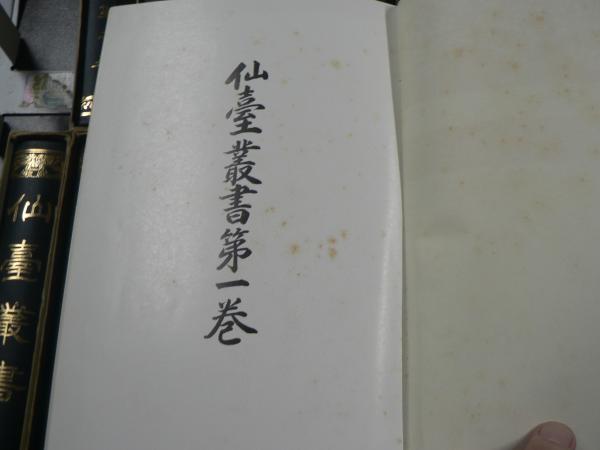 仙臺叢書第一巻
仙臺叢書